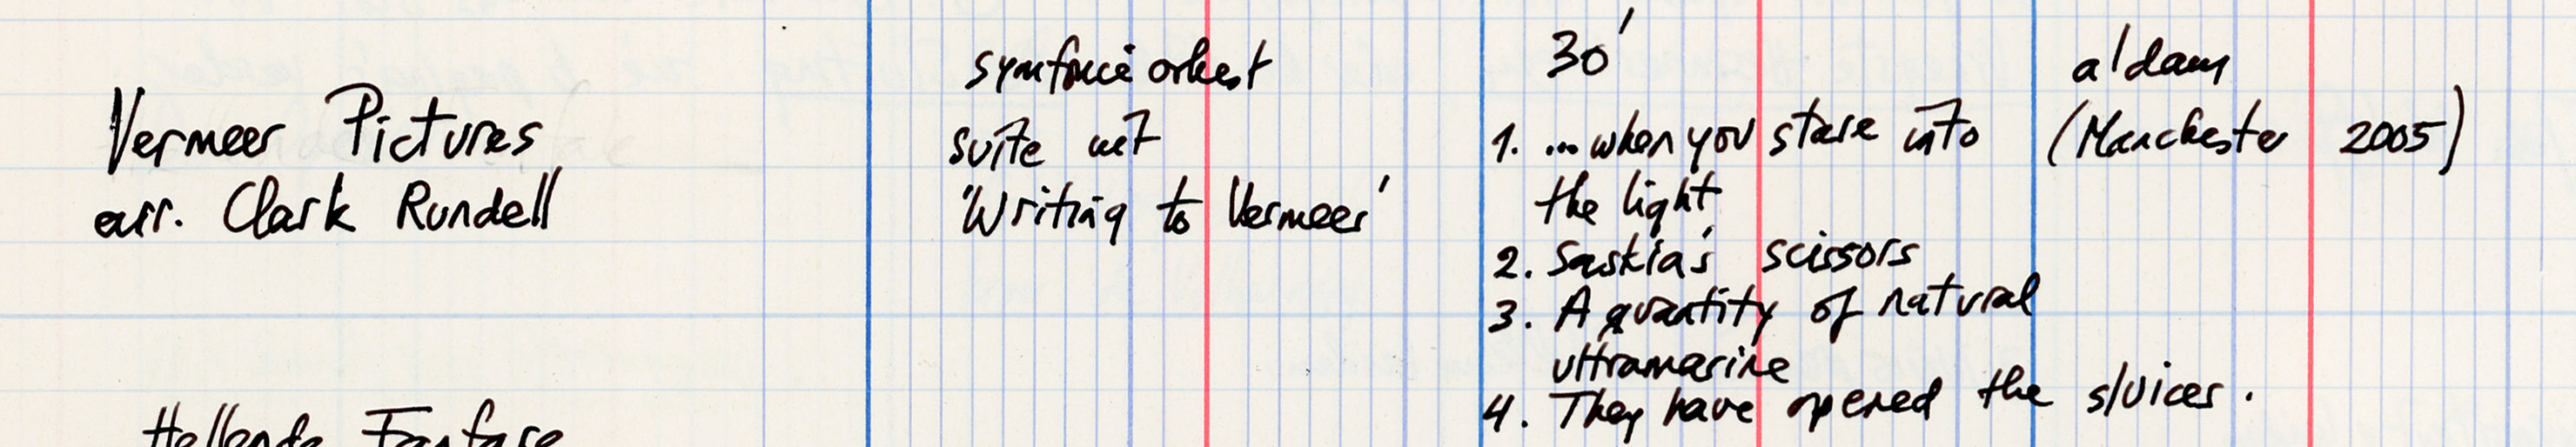 Vermeer Pictures
arr. Clark Rundell
symfonie orkest
suite uit
'Writing to Vermeer'
30'
1. ... when you stare into
the light
2. Saskia's scissors
3. A quantity of natural
ultramarine
4. They have opened the sluices.
a'dam
(Manchester 2005)
Hollands Fanfare